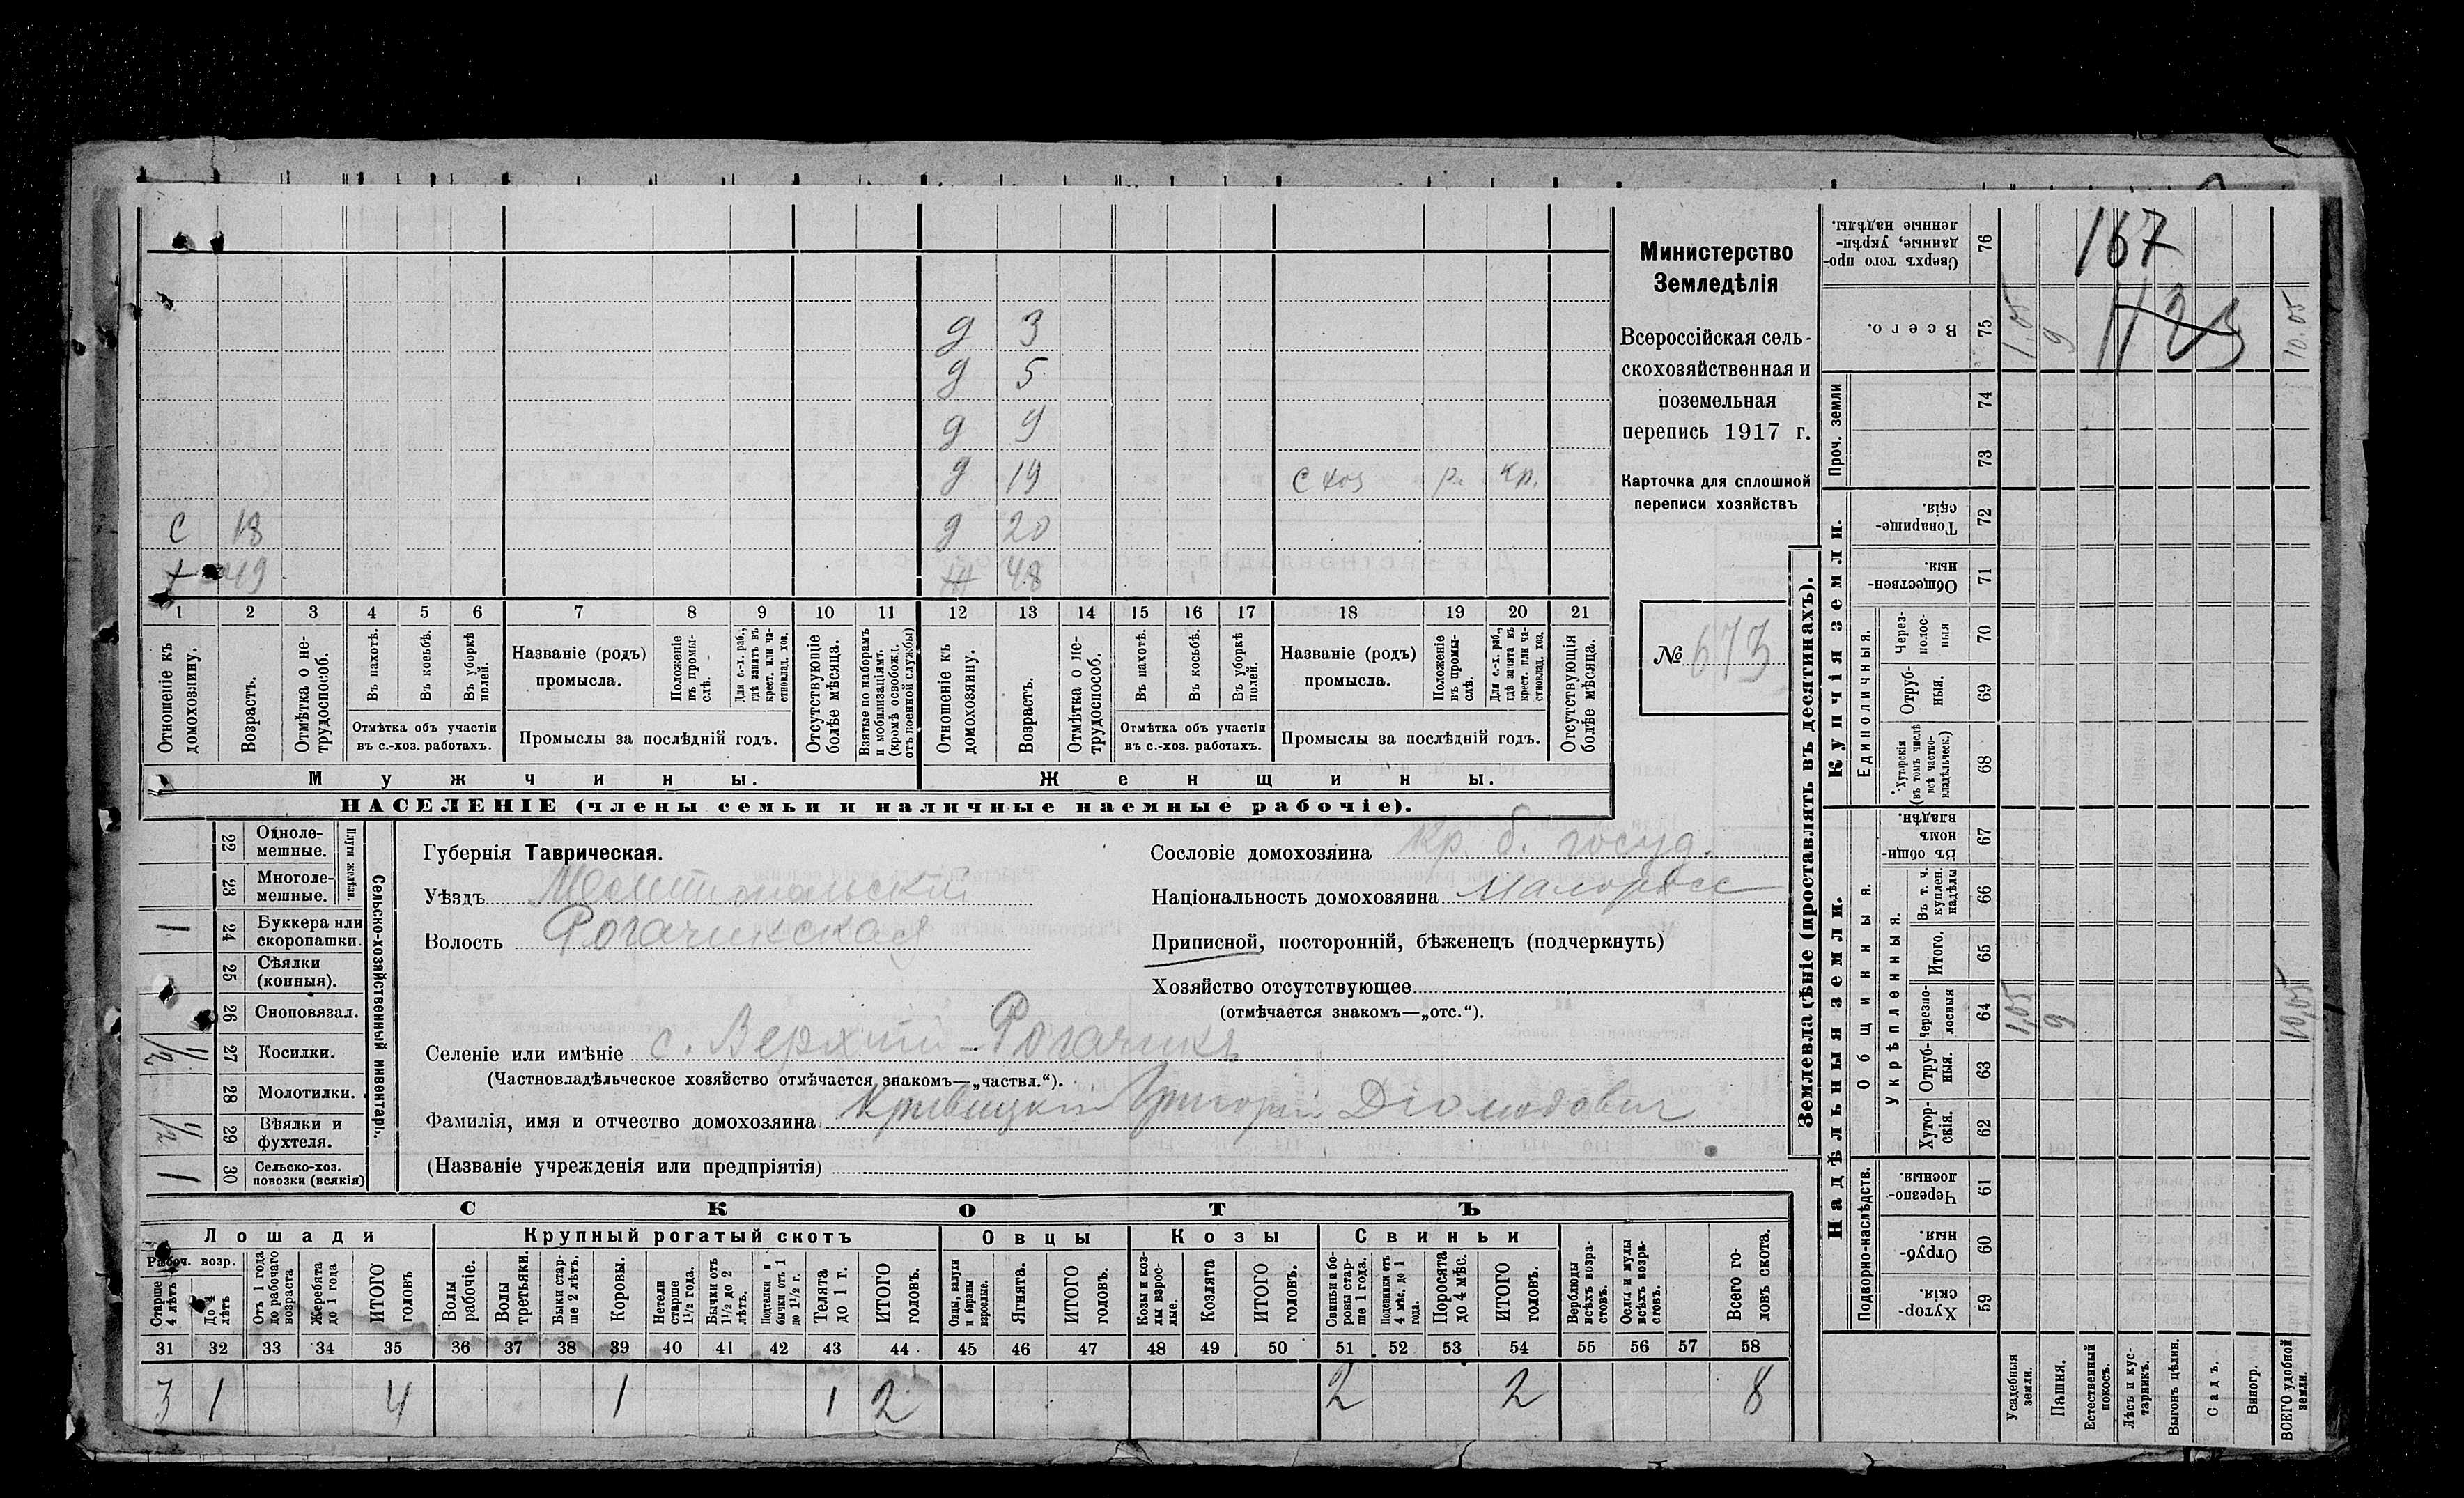 д 3
д 5
д 9
д 19 с хоз р. кр.
с 18 д 20
х 49 ж 48
1 2 3 4 5 6 7 8 9 10 11 12 13 14 15 16 17 18 19 20 21
Отношеніе къ домохозяину.
Возрастъ.
Отмѣтка о не-трудоспособ.
Въ пахотѣ.
Въ косьбѣ.
Въ уборкѣ полей.
Отмѣтка объ участіи въ с.-хоз. работахъ.
Названіе (родъ) промысла.
Положеніе въ промы-слѣ.
Для с.-х. раб., гдѣ занятъ въ крест. или ча-стновлад. хоз.
Промыслы за послѣдній годъ.
Отсутствующіе болѣе мѣсяца.
Взятые по наборамъ и мобилизаціямъ (кромѣ освобожд. отъ военной службы)
Отношеніе къ домохозяину.
Возрастъ.
Отмѣтка о не-трудоспособ.
Въ пахотѣ.
Въ косьбѣ.
Въ уборкѣ полей.
Отмѣтка объ участіи въ с.-хоз. работахъ.
Названіе (родъ) промысла.
Положеніе въ промы-слѣ.
Для с.-х. раб., гдѣ занята въ крест. или ча-стновлад. хоз.
Промыслы за послѣдній годъ.
Отсутствующія болѣе мѣсяца.
Мужчины. Женщины.
НАСЕЛЕНІЕ (члены семьи и наличные наемные рабочіе).
Министерство
Земледѣлія
Всероссійская сель-
скохозяйственная и
поземельная
перепись 1917 г.
Карточка для сплошной
переписи хозяйствъ
№ 673
Сельско-хозяйственный инвентарь.
Плуги желѣзн.
22 Одноле-мешные.
23 Многоле-мешные.
1 24 Буккера или скоропашки.
25 Сѣялки (конныя).
26 Сноповязал.
1/2 27 Косилки.
28 Молотилки.
1/2 29 Вѣялки и фухтеля.
1 30 Сельско-хоз. повозки (всякія)
Губернія Таврическая.
Уѣздъ Мелитопольскій
Волость Рогачикская
Сословіе домохозяина кр. б. госуд.
Національность домохозяина малоросс
Приписной, посторонній, бѣженецъ (подчеркнуть)
Хозяйство отсутствующее
(отмѣчается знакомъ—„отс.“).
Селеніе или имѣніе с. Верхній-Рогачикъ
(Частновладѣльческое хозяйство отмѣчается знакомъ—„частвл.“).
Фамилія, имя и отчество домохозяина Кривицкій Григорій Діомидович
(Названіе учрежденія или предпріятія)
СКОТЪ
Лошади Крупный рогатый скотъ Овцы Козы Свиньи
Рабоч. возр.
Старше 4 лѣтъ
До 4 лѣтъ
Отъ 1 года до рабочаго возраста
Жеребята до 1 года
ИТОГО головъ
Волы рабочіе.
Волы третьяки.
Быки стар-ше 2 лѣтъ.
Коровы.
Нетели старше 1½ года.
Бычки отъ 1½ до 2 лѣтъ.
Подтелки и бычки отъ 1 до 1½ г.
Телята до 1 г.
ИТОГО головъ.
Овцы, валухи и бараны взрослые.
Ягнята.
ИТОГО головъ.
Козы и коз-лы взрос-лые.
Козлята
ИТОГО головъ.
Свиньи и бо-ровы стар-ше 1 года.
Подсвинки отъ 4 мѣс. до 1 года.
Поросята до 4 мѣс.
ИТОГО головъ.
Верблюды всѣхъ возра-стовъ.
Ослы и мулы всѣхъ возра-стовъ.
Всего го-ловъ скота.
31 32 33 34 35 36 37 38 39 40 41 42 43 44 45 46 47 48 49 50 51 52 53 54 55 56 57 58
3 1 4 1 1 2 2 2 8
Землевладѣніе (проставлять въ десятинахъ).
Надѣльныя земли. Купчія земли. Проч. земли
Подворно-наслѣдств.
Общинныя.
Укрѣпленныя.
Единоличныя.
76 Сверхъ того про-данные, укрѣп-ленные надѣлы.
167
75 Всего. 1.05 9 1123 10.05
74
73
72 Товарище-скія.
71 Обществен-ныя.
70 Через-полос-ныя
69 Отруб-ныя.
68 Хуторскія (въ томъ числѣ всѣ частно-владѣльческ.)
67 Въ общин-номъ владѣн.
66 Въ т. ч. куплен. надѣлы
65 Итого.
64 Черезпо-лосныя 1,05 9 10,05
63 Отруб-ныя.
62 Хутор-скія.
61 Черезпо-лосныя.
60 Отруб-ныя.
59 Хутор-скія.
Усадебныя земли.
Пашня.
Естественный покосъ.
Лѣсъ и кус-тарникъ.
Выгонъ цѣлин.
Садъ.
Виногр.
ВСЕГО удобной земли.